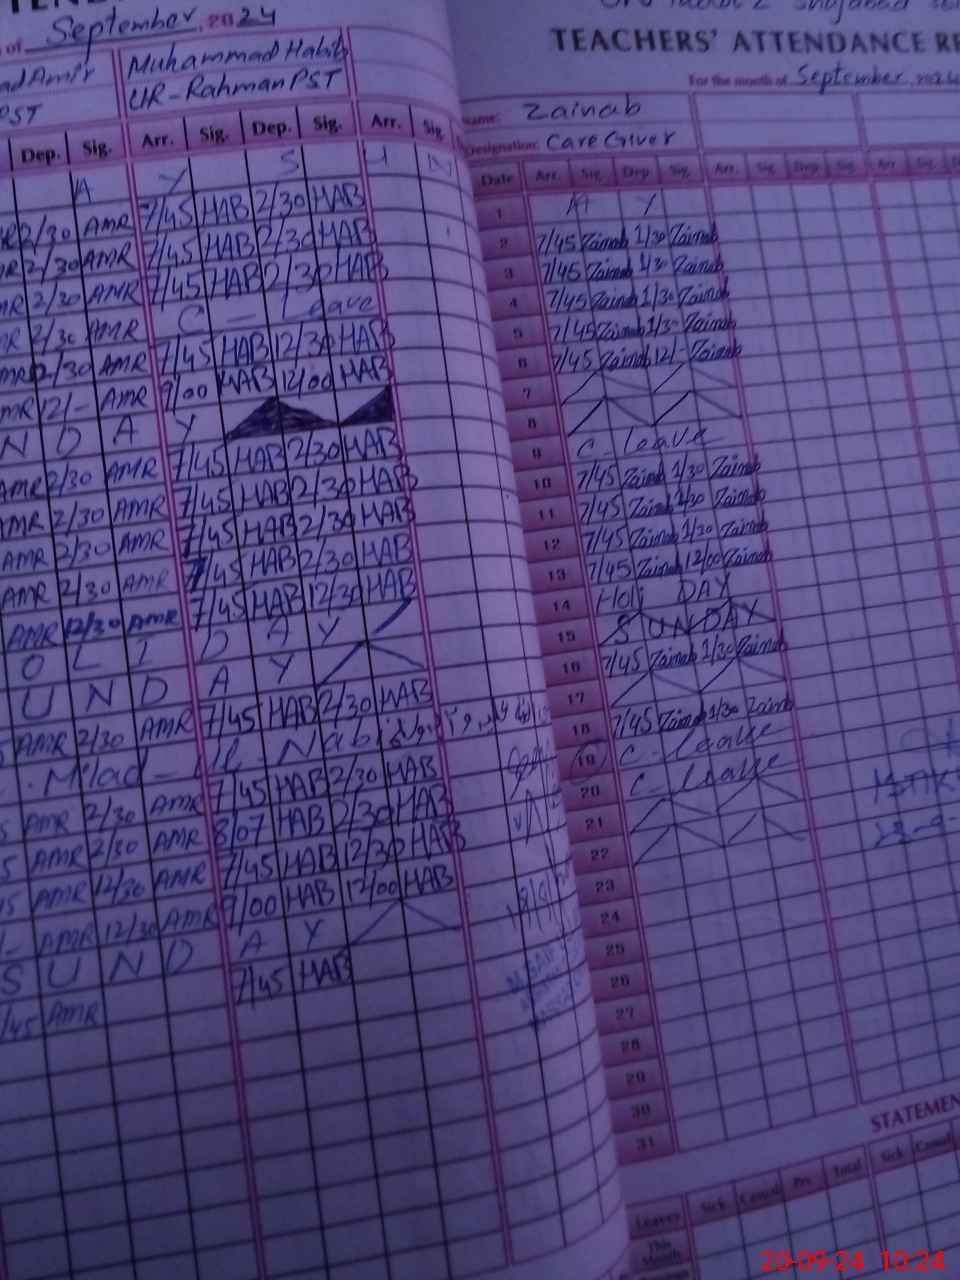 of September, 2024
ad Amir
PST
Muhammad Habib
UR-Rahman PST
Dep. Sig. Arr. Sig. Dep. Sig. Arr. Sig.
A Y S U N
2/30 AMR 7/45 HAB 2/30 HAB
2/30 AMR 7/45 HAB 2/30 HAB
2/30 AMR 7/45 HAB 2/30 HAB
2/30 AMR C - Leave
2/30 AMR 7/45 HAB 12/30 HAB
12/- AMR 9/00 HAB 12/00 HAB
N D A Y
AMR 2/30 AMR 7/45 HAB 2/30 HAB
AMR 2/30 AMR 7/45 HAB 2/30 HAB
AMR 2/30 AMR 7/45 HAB 2/30 HAB
AMR 2/30 AMR 7/45 HAB 2/30 HAB
AMR 12/30 AMR 7/45 HAB 12/30 HAB
O L I D A Y
U N D A Y
AMR 2/30 AMR 7/45 HAB 2/30 HAB
Milad - Ul - Nabi
AMR 2/30 AMR 7/45 HAB 2/30 HAB
AMR 2/30 AMR 8/07 HAB 2/30 HAB
AMR 12/30 AMR 7/45 HAB 12/30 HAB
AMR 12/30 AMR 9/00 HAB 12/00 HAB
S U N D A Y
7/45 AMR 7/45 HAB
TEACHERS' ATTENDANCE RE
For the month of September, 2024
Name: Zainab
Designation: Care Giver
Date Arr. Sig. Dep. Sig. Arr. Sig. Dep. Sig. Arr. Sig.
1 A Y
2 7/45 Zainab 1/30 Zainab
3 7/45 Zainab 1/30 Zainab
4 7/45 Zainab 1/30 Zainab
5 7/45 Zainab 1/30 Zainab
6 7/45 Zainab 12/- Zainab
7
8
9 C - leave
10 7/45 Zainab 1/30 Zainab
11 7/45 Zainab 1/30 Zainab
12 7/45 Zainab 1/30 Zainab
13 7/45 Zainab 12/00 Zainab
14 Holi DAY
15 SUNDAY
16 7/45 Zainab 1/30 Zainab
17
18 7/45 Zainab 1/30 Zainab
19 C - leave
20 C - leave
21
22
23
24
25
26
27
28
29
30
31
STATEMEN
Leaves Sick Casual Prv. Total Sick Casual
This month
20-09-24 10:24